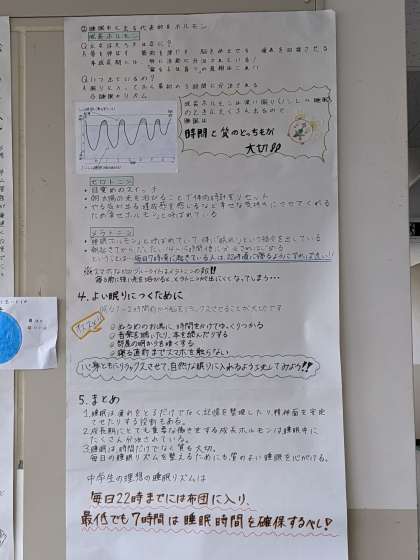 ②睡眠中に出る代表的なホルモン
成長ホルモン
Q.どんなはたらきをするの?
A.骨を伸ばす 筋肉を増やす 脳をめざめさせる 疲労を回復させる
成長期には 特に活発に分泌されている!
「寝る子は育つ」の
Q.いつ出ているの?
A.眠りに入ってから最初の3時間に分泌される
睡眠のリズム
成長ホルモンは深い眠り(ノンレム睡眠)
のときにたくさん出るので
睡眠は
時間と質のどっちもが
大切!!
セロトニン
・目覚めのスイッチ
・朝太陽の光を浴びることで体内時計をリセット
・やる気が出る達成感を感じるなど幸せな気持ちにさせてくれる
ため幸せホルモンと呼ばれている
メラトニン
・睡眠ホルモンと呼ばれていて体に「眠れ」という指令を出している
ということは…毎日7時頃に起きている人は22時頃に寝るようにすればよい!!
※スマホなどのブルーライトはメラトニンの敵!!
寝る前に強い光を浴びると、メラトニンが出にくくなってしまう…
4.よい眠りにつくために
眠る1~2時間前から脳をリラックスさせることが大切です
◎ぬるめのお湯に時間をかけてゆっくりつかる
◎音楽を聴いたり、本を読んだりする
◎部屋の明かりを暗くする
◎寝る直前までスマホを触らない
心身ともにリラックスさせて、自然な眠りに入れるよう工夫してみよう!!
5.まとめ
1.睡眠は疲れをとるだけでなく記憶を整理したり、精神面を安定
させたりする役割もある。
2.成長期にとても重要な働きをする成長ホルモンは睡眠中に
たくさん分泌されている。
3.睡眠は、時間だけでなく質も大切。
毎日の睡眠リズムを整えるためにも、質のよい睡眠を心がける。
中学生の理想の睡眠リズムは
毎日22時までには布団に入り、
最低でも7時間は睡眠時間を確保するべし!